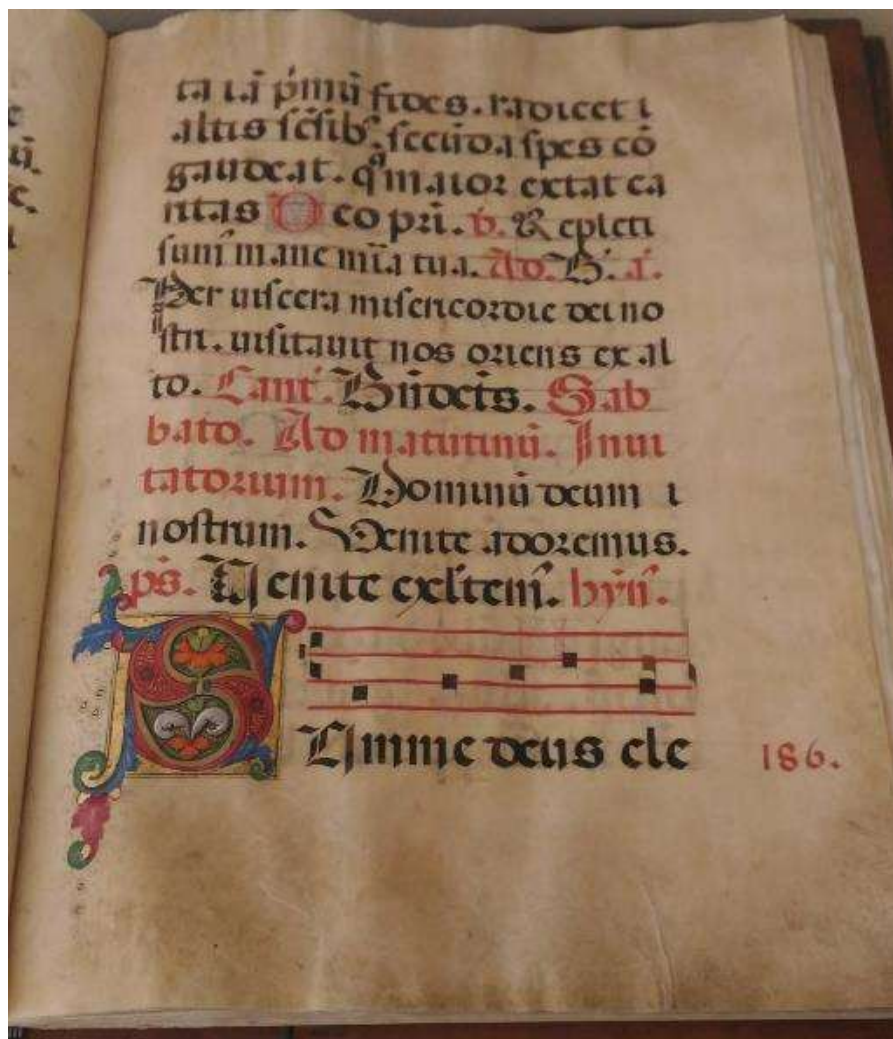 ta iā p̄mū fides. radicet ī
altis sēsibꝰ. secūda spes cō
gaudeat. qͣ maior extat ca
ritas Deo pr̄i. v̄. Repleti
sum᷒ mane mīa tua. Ad. B᷒. a᷒.
Per viscera misericordie dei no
stri. visitavit nos oriens ex al
to. Cant᷒. Bn̄dict᷒s. Sab
bato. Ad matutinū. Invi
tatorium. Dominū deum
nostrum. Venite adoremus.
ps̄. Venite exultem᷒. hym̄.
Summe deus cle
186.